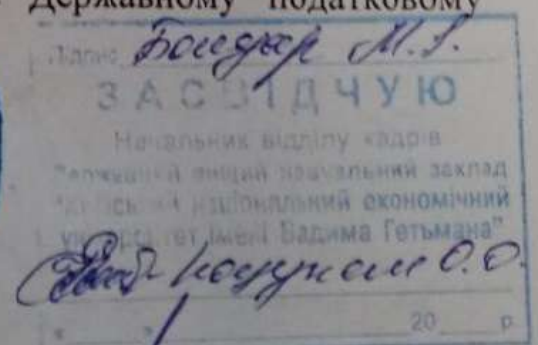 Державному податковому
Підпис Бондар М.І.
ЗАСВІДЧУЮ
Начальник відділу кадрів
Державний вищий навчальний заклад
"Київський національний економічний
університет імені Вадима Гетьмана"
О.О.
« » 20 р